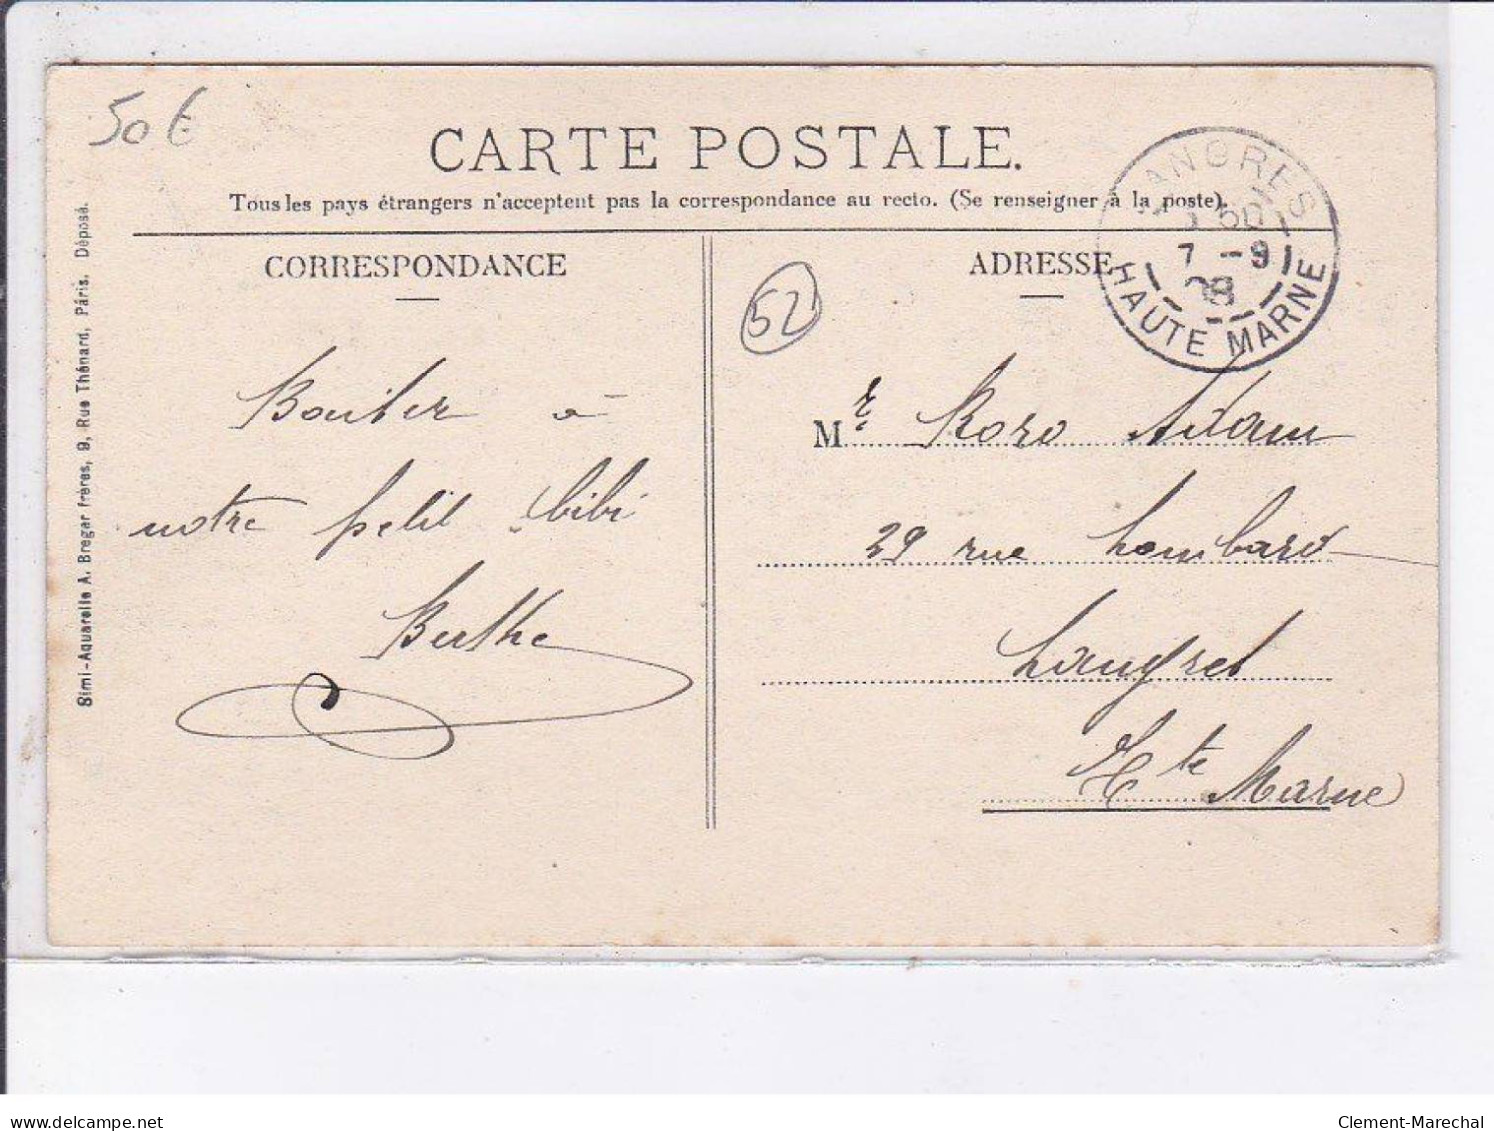 50€
CARTE POSTALE.
Tous les pays étrangers n'acceptent pas la correspondance au recto. (Se renseigner à la poste).
CORRESPONDANCE
ADRESSE
LANGRES
7 - 9
08
HAUTE MARNE
52
à
notre petit bibi
Berthe
Mr Roro Adam
29 rue Lombard
Langres
Hte Marne
Simi-Aquarelle A. Breger frères, 9, Rue Thénard, Paris. Déposé.
delcampe.net
Clement-Marechal